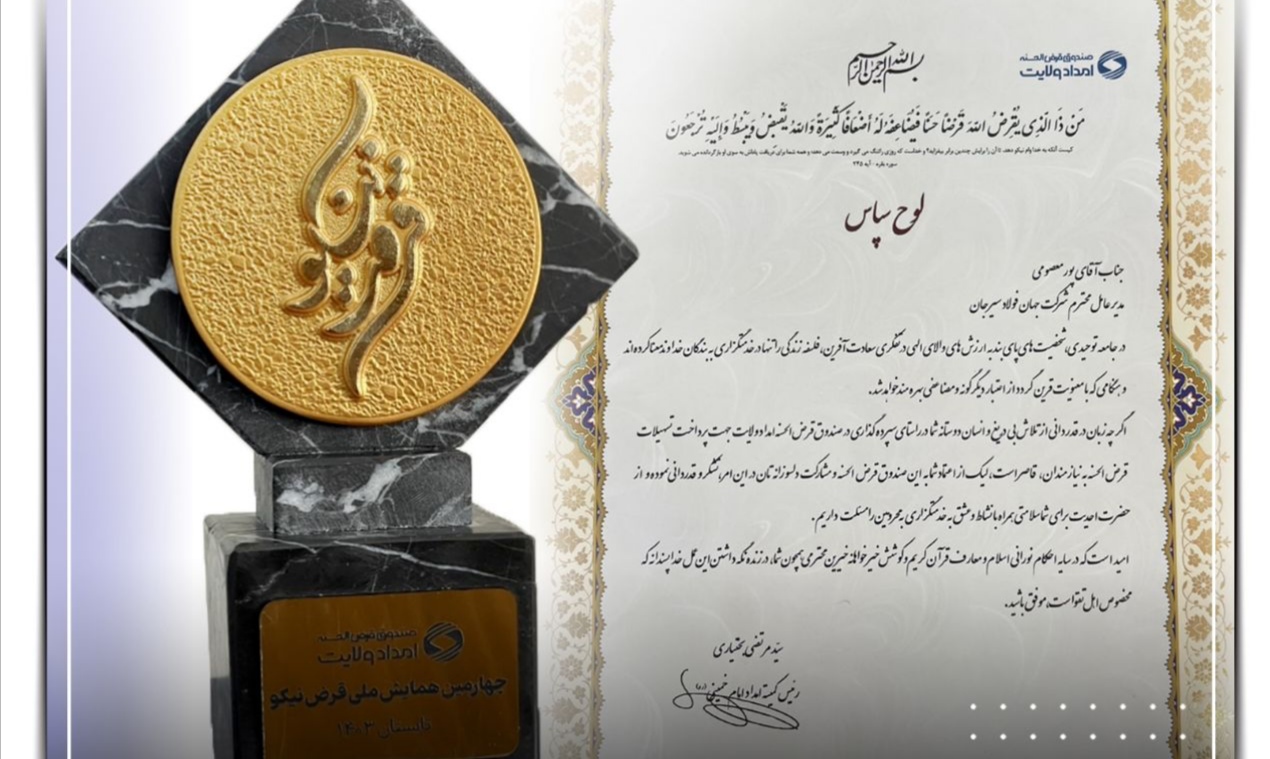 صندوق قرض الحسنه
امداد ولایت
بسم الله الرحمن الرحیم
مَن ذَا الَّذِی یُقْرِضُ اللهَ قَرْضًا حَسَنًا فَیُضَاعِفَهُ لَهُ أَضْعَافًا كَثِیرَةً وَاللهُ یَقْبِضُ وَیَبْسُطُ وَإِلَیْهِ تُرْجَعُونَ
کیست آنکه به خدا وام نیکو دهد، تا آن را برایش چندین برابر بیفزاید؟ و خداست که روزی را تنگ می گیرد و وسعت می دهد؛ و همه شما برای دریافت پاداش به سوی او بازگردانده می شوید.
سوره بقره - آیه ۲۴۵
لوح سپاس
جناب آقای پور معصومی
مدیر عامل محترم شرکت جهان فولاد سیرجان
در جامعه توحیدی، شخصیت های پای بند به ارزش های والای الهی در تفکری سعادت آفرین، فلسفه زندگی را تنها در خدمتگزاری به بندگان خداوند معنا کرده اند
و هنگامی که با معنویت قرین گردد از اعتبار دیگرگونه و مضاعفی بهره مند خواهد شد.
اگر چه زبان در قدردانی از تلاش بی دریغ و انسان دوستانه شما در راستای سپرده گذاری در صندوق قرض الحسنه امداد ولایت جهت پرداخت تسهیلات
قرض الحسنه به نیازمندان، قاصر است، لیک از اعتماد شما به این صندوق قرض الحسنه و مشارکت دلسوزانه تان در این امر، تشکر و قدردانی نموده و از
حضرت احدیت برای شما سلامتی همراه با نشاط و عشق به خدمتگزاری به محرومین را مسئلت داریم.
امید است که در سایه احکام نورانی اسلام و معارف قرآن کریم و کوشش خیرخواهانه خیرین محترمی همچون شما، در زنده نگه داشتن این عمل خداپسندانه که
مخصوص اهل تقواست، موفق باشید.
سید مرتضی بختیاری
رئیس کمیته امداد امام خمینی (ره)
قرض نیکو
صندوق قرض الحسنه
امداد ولایت
چهارمین همایش ملی قرض نیکو
تابستان ۱۴۰۳